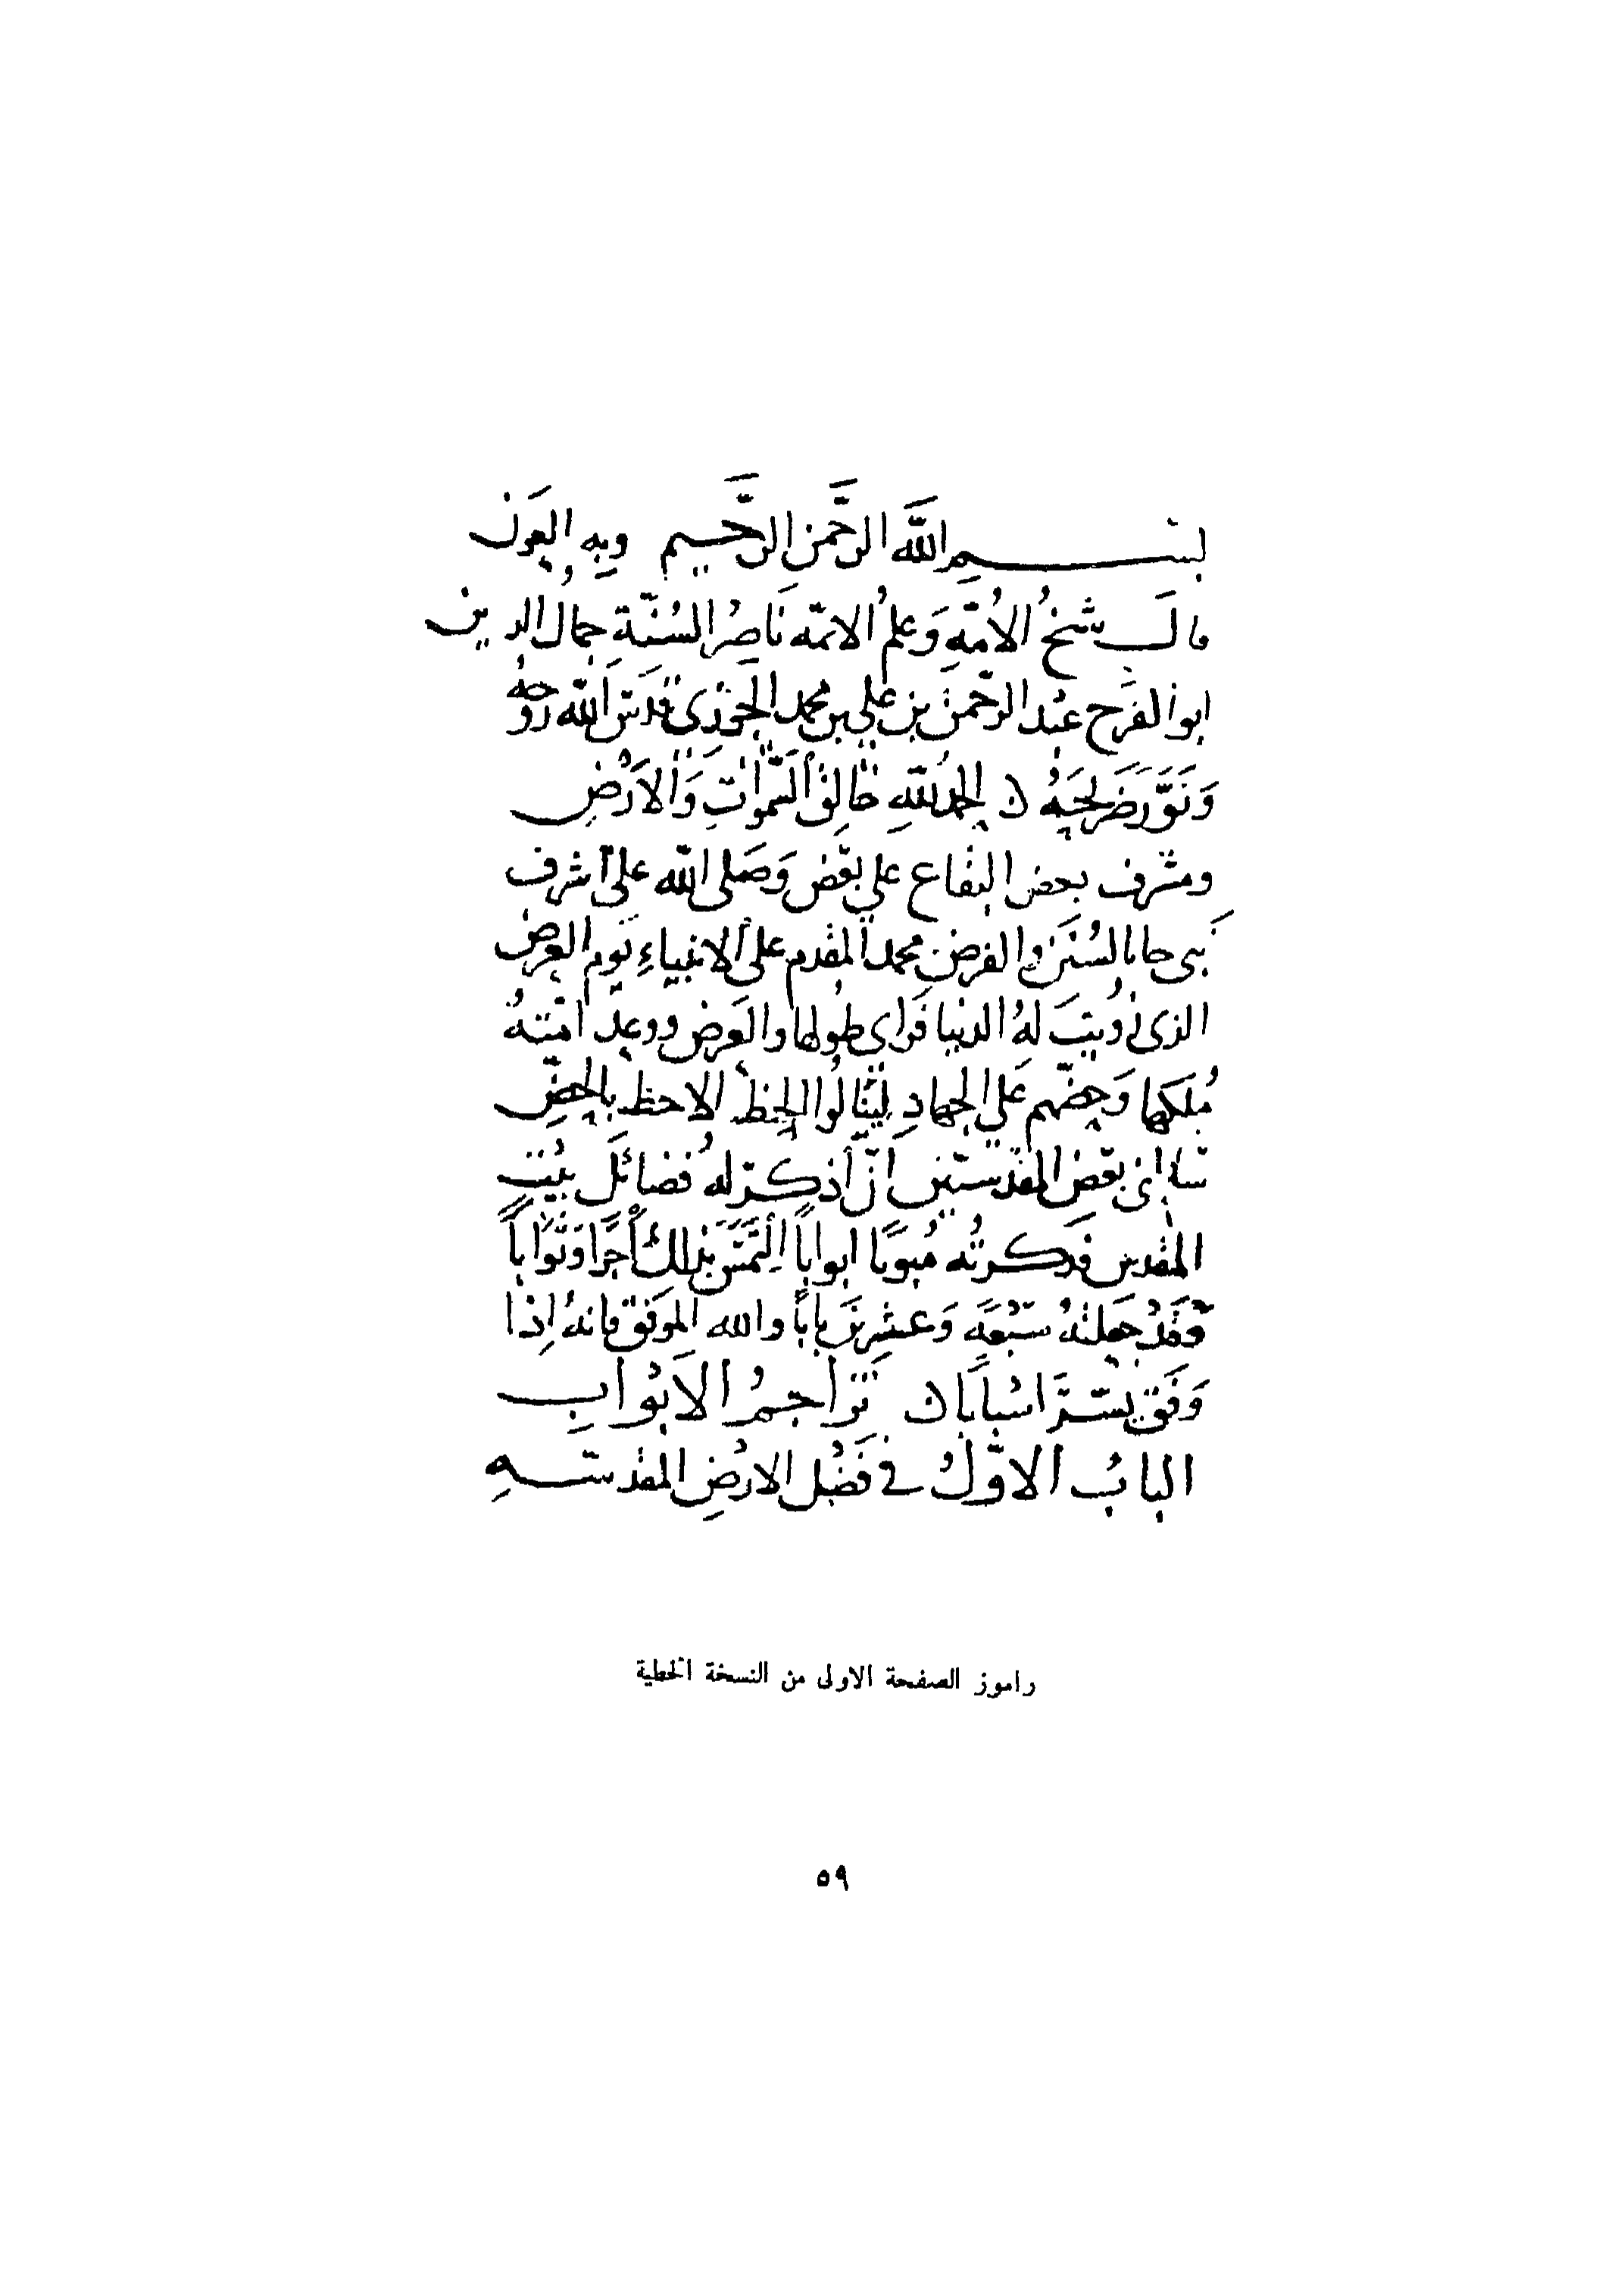 بسم الله الرحمن الرحيم وبه العون
قال شيخ الأمّةِ وَعلمُ الائمّه نَاصِرُ السُنّةِ جمالُ الدين
ابو الفَرَج عبْد الرّحمن بن علي بن محمد الجَوزي قدّسَ اللّه رُوحَهُ
وَنَوَّرَ ضَرِيحَهُ الحمدُ للّهِ خَالِق السّمواتِ وَالأرْضِ
ومشرّف بعض البقاع علي بَعْض وَصَلى اللّه على أشرف
نَبي جانا بالسُنَن والفرض محمد المقدم على الانبياءِ يَوم العرض
الذي زُويَتَ لهُ الدنيا فَراي طولها والعَرض ووعد امّتهُ
مُلكَها وَحضّهم عَلي الجهادِ لِيَنالُوا الحظ الاحظ بالحضِّ
سَاَلني بعَض المقدسيّين انْ أذكرَ لهُ فضائلَ بيْتِ
المقدس فذكرتُه مُبوبًا ابواباً الْتَمسَ بذلك أجرًا وَثَوَاباً
وَقدْ جعلتهُ سَبْعَةً وَعشرِينَ باباً والله الموَفق فانهُ إذا
وَفّق يسّرَ اسْباباً تَراجمُ الأبْوابِ
البابُ الاوّلُ في فَضْل الارْضِ المقدسَهِ
راموز الصفحة الاولى من النسخة الخطية
٥٩